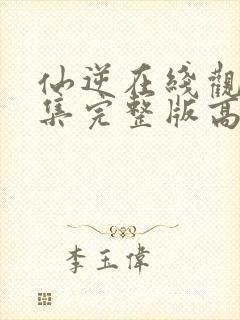 仙逆在线觀
集完整版高
李玉偉